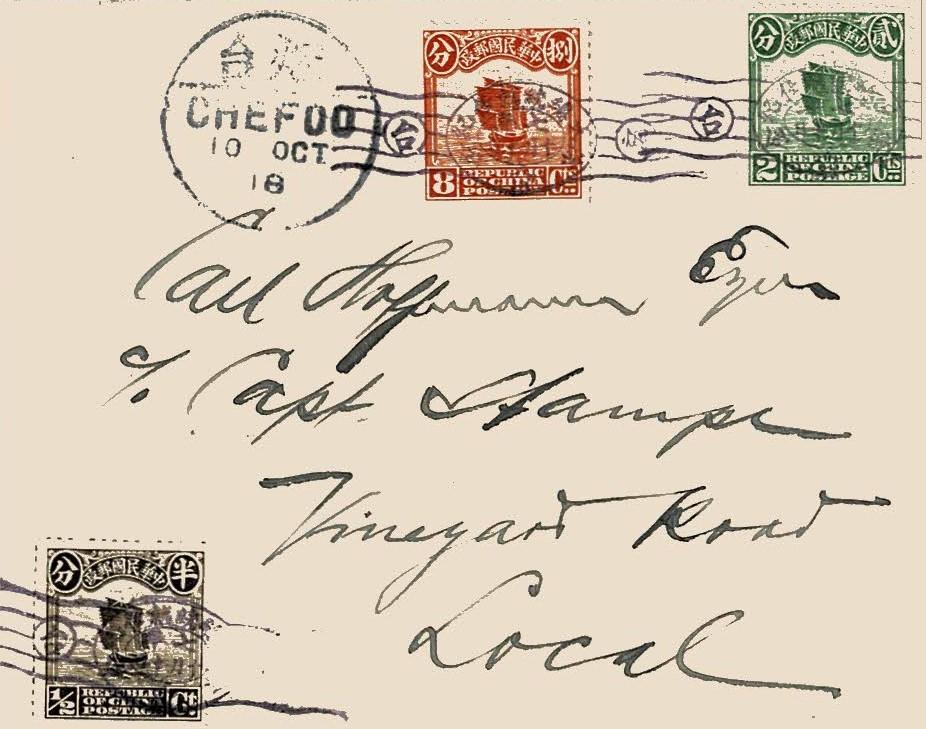 CHEFOO
10 OCT
18
分 捌
政郵國民華中
8 REPUBLIC OF CHINA POSTAGE Cts
分 貳
政郵國民華中
2 REPUBLIC OF CHINA POSTAGE Cts
台
台
Carl Hoffmann Esqr
c/. Capt. Stampe
Vineyard Road
Local
分 半
政郵國民華中
1/2 REPUBLIC OF CHINA POSTAGE Ct